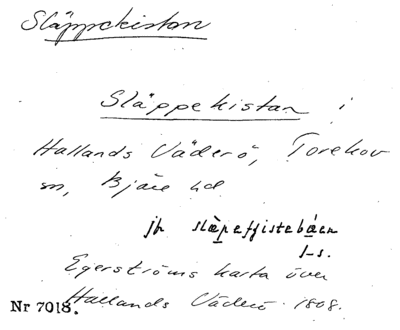 Släppekistan
Släppekistan i
Hallands Väderö, Torekov
sn, Bjäre hd
jfr
s.
Egerströms karta över
Hallands Väderö 1808.
Nr 7018.